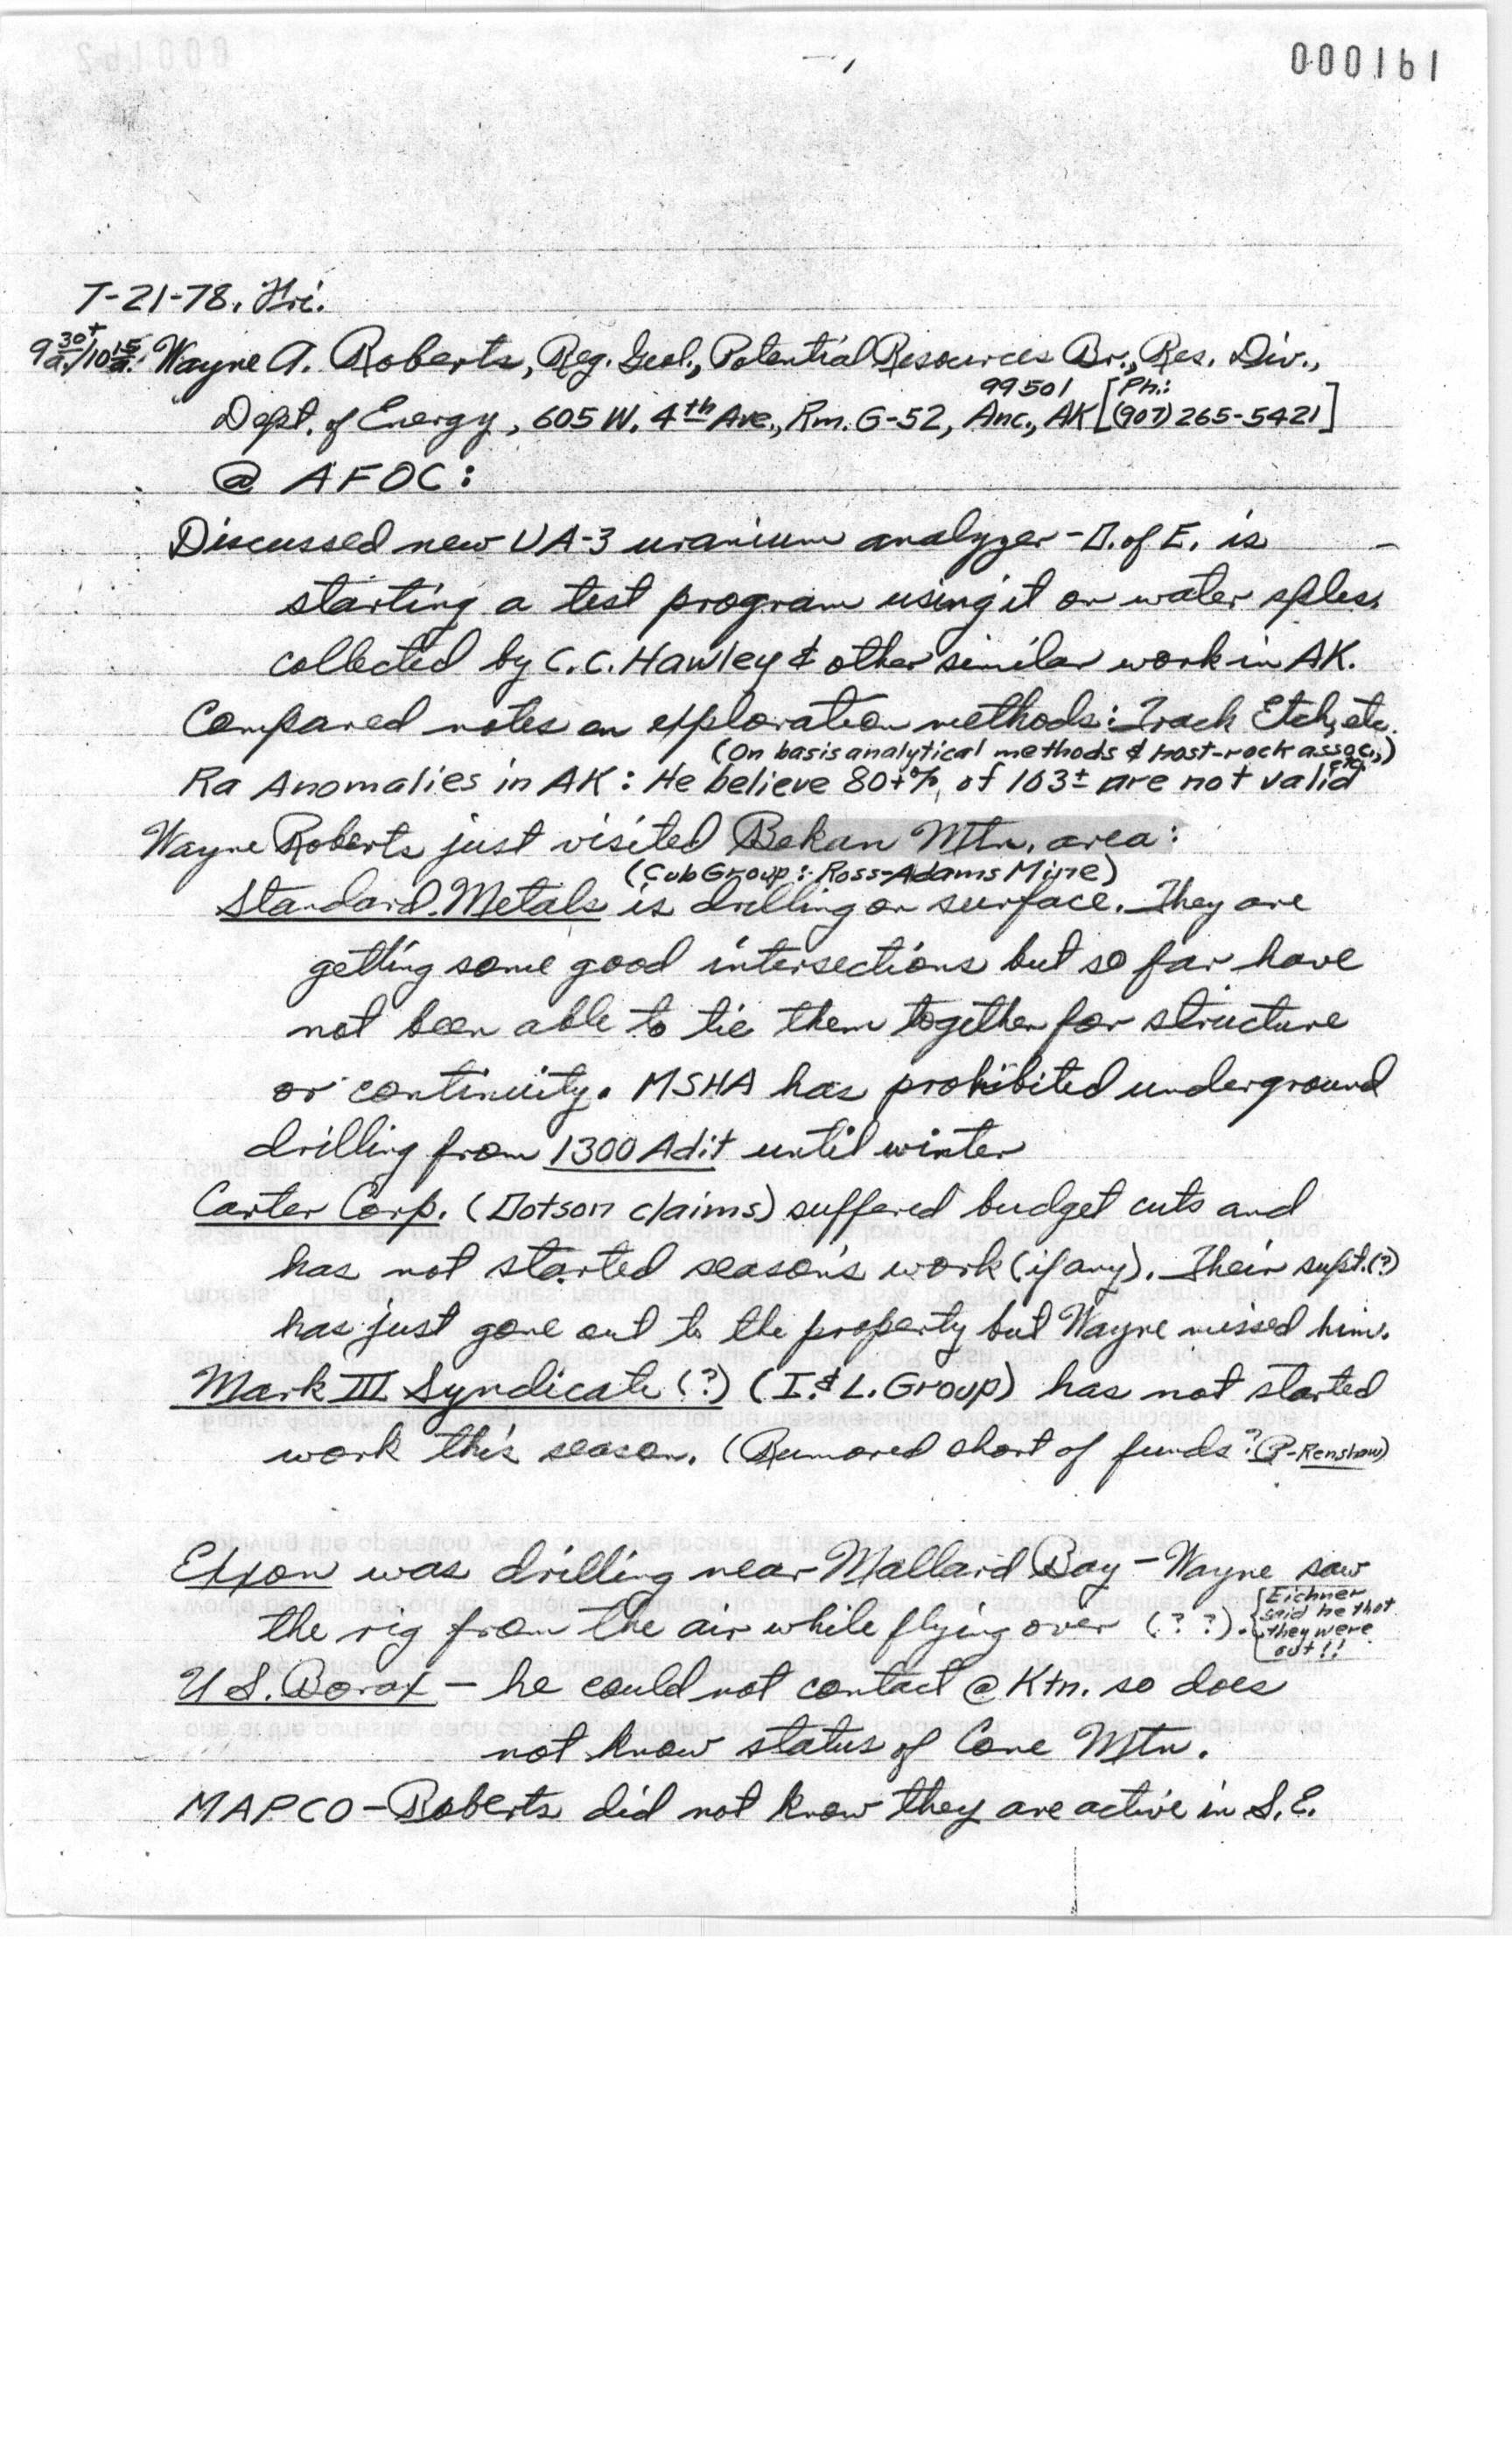 000161
7-21-78. Fri.
9 30+ a./10 15 a. Wayne A. Roberts, Reg. Geol., Potential Resources Br., Res. Div.,
99501 [Ph.:
Dept. of Energy, 605 W. 4th Ave., Rm. G-52, Anc., AK (907) 265-5421]
@ AFOC:
Discussed new UA-3 uranium analyzer - D. of E. is
starting a test program using it on water sples.
collected by C.C. Hawley & other similar work in AK.
Compared notes on exploration methods: Track Etch, etc.
(On basis analytical methods & host-rock assoc., etc.)
Ra Anomalies in AK: He believe 80+% of 103± are not valid
Wayne Roberts just visited Bokan Mtn. area:
(Cub Group: Ross-Adams Mine)
Standard Metals is drilling on surface. They are
getting some good intersections but so far have
not been able to tie them together for structure
or continuity. MSHA has prohibited underground
drilling from 1300 Adit until winter
Carter Corp. (Dotson claims) suffered budget cuts and
has not started season's work (if any). Their supt.(?)
has just gone out to the property but Wayne missed him.
Mark III Syndicate (?) (I. & L. Group) has not started
work this season. (Rumored short of funds? P-Renshaw)
Exxon was drilling near Mallard Bay - Wayne saw
the rig from the air while flying over (??).
{Eichner
said he thot
they were
out!!
U.S. Borax - he could not contact @ Ktn. so does
not know status of Cone Mtn.
MAPCO - Roberts did not know they are active in S.E.